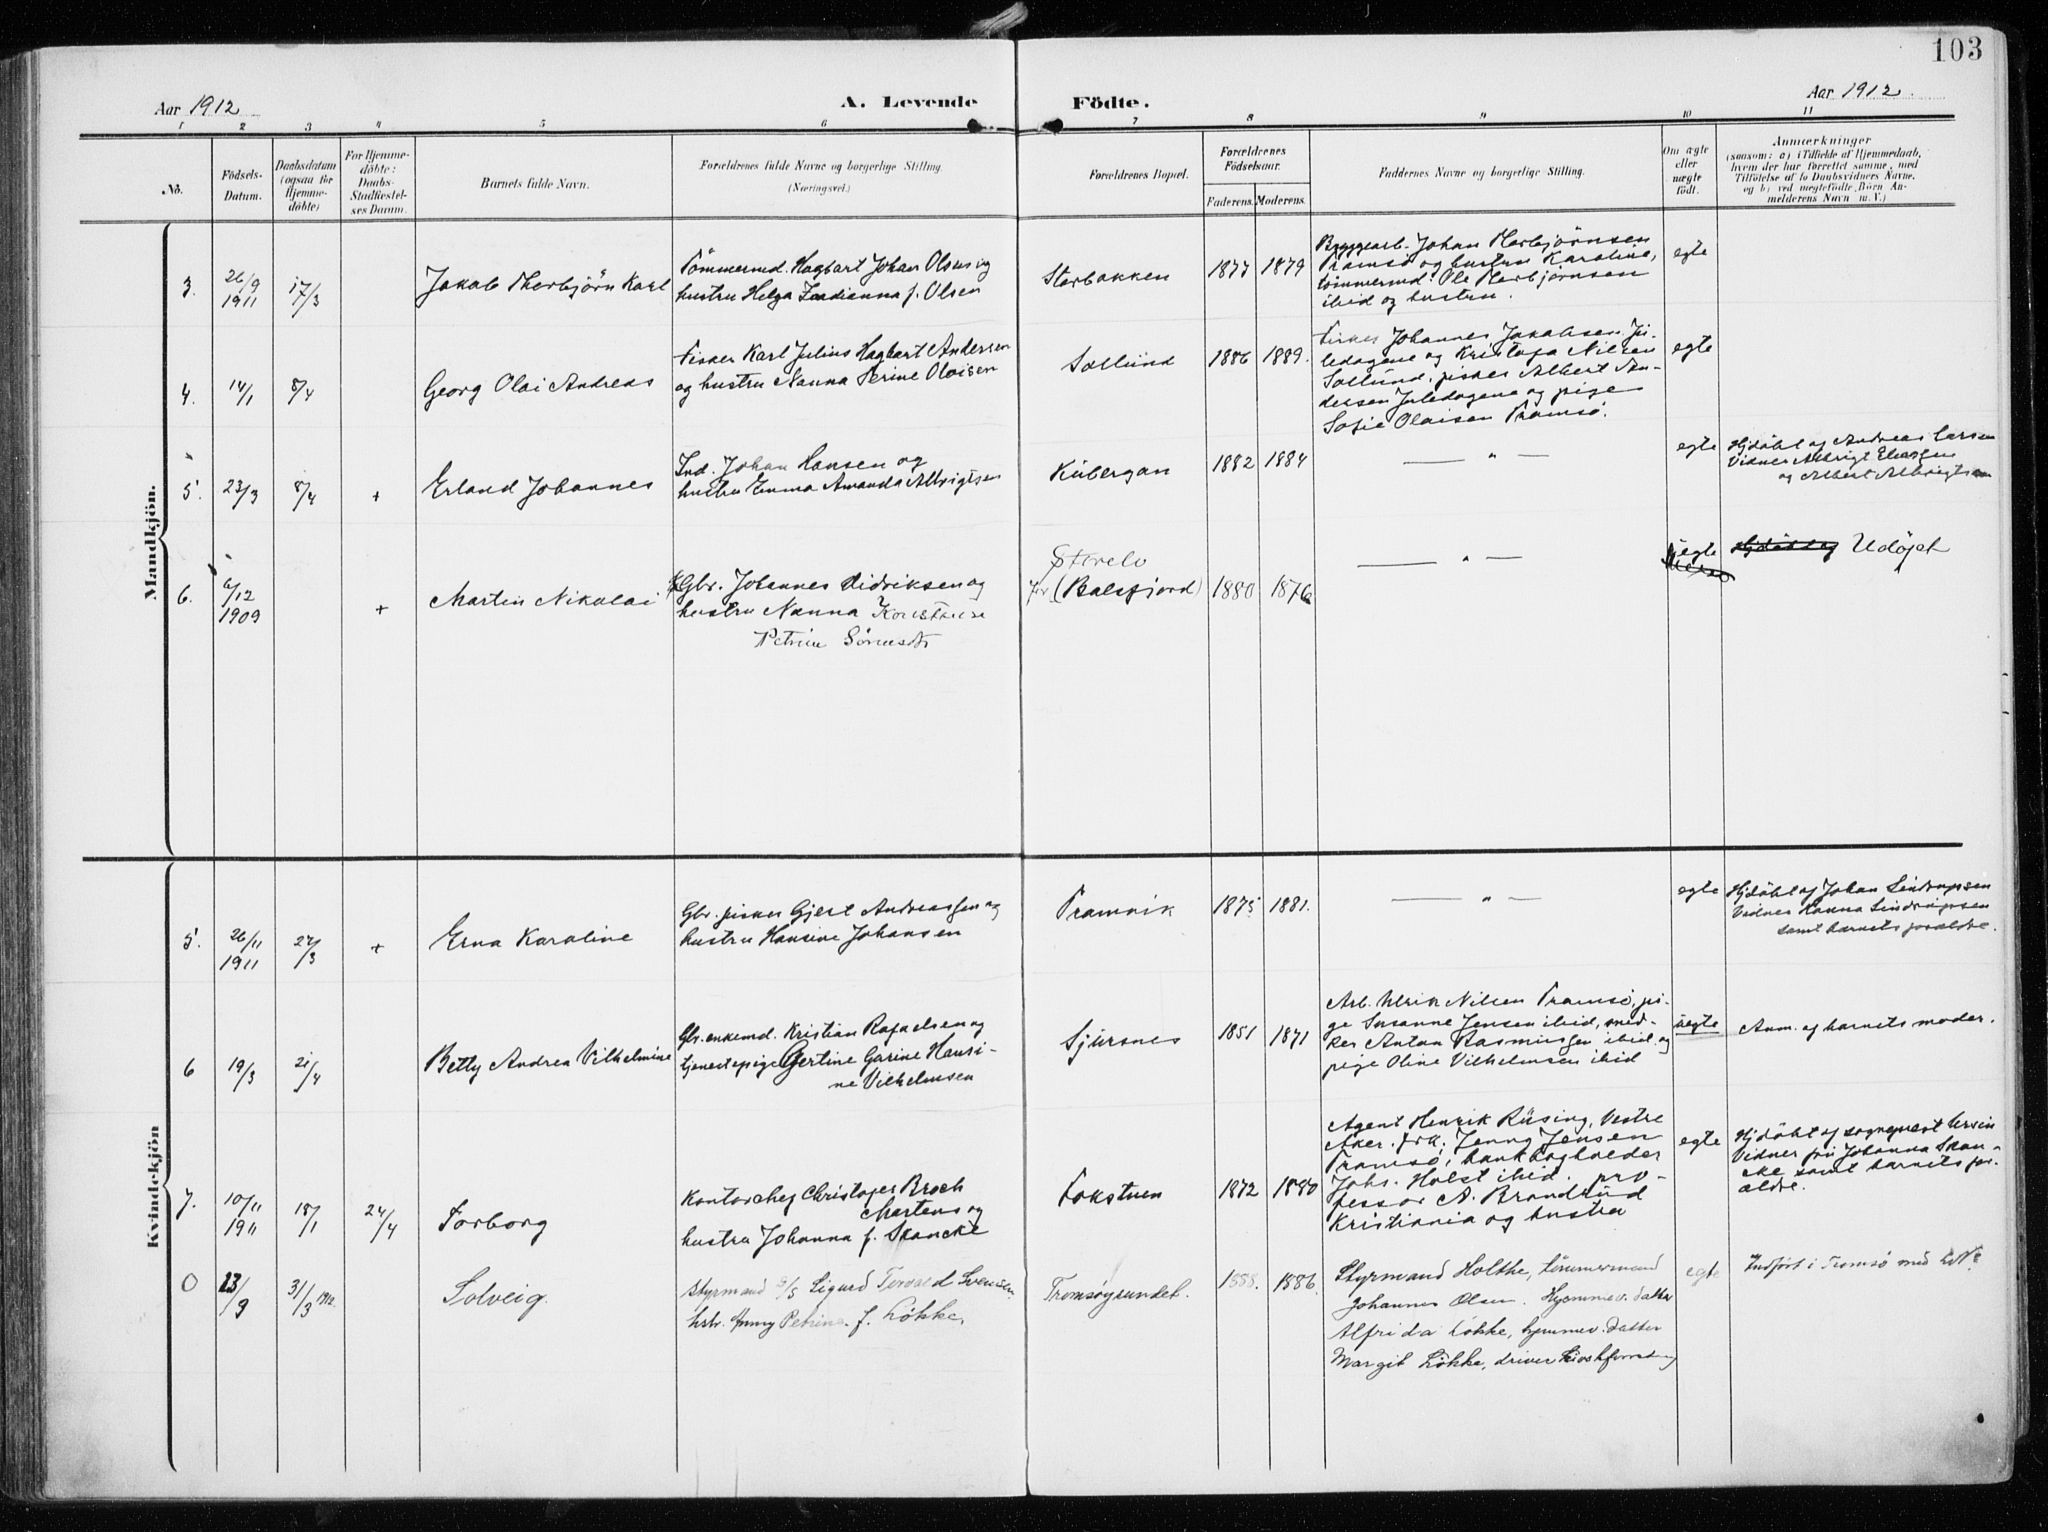 103
Aar 1912
A. Levende
Födte.
Aar 1912.
1 2 3 4 5 6 7 8 9 10 11
No.
Födsels-
Datum.
Daabsdatum
(ogsaa for
Hjemme-
döbte)
For Hjemme-
döbte:
Daabs-
Stadfæstel-
ses Datum.
Barnets fulde Navn.
Forældrenes fulde Navne og borgerlige Stilling.
(Næringsvei.)
Forældrenes Bopæl.
Forældrenes
Födselsaar.
Faderens. Moderens.
Faddernes Navne og borgerlige Stilling.
Om ægte
eller
uægte
födt.
Anmærkninger
(saasom: a) i Tilfælde af Hjemmedaab,
hvem der har forrettet samme, med
Tilföielse af to Daabsvidners Navne,
og b) ved uægtefödte Börn An-
melderens Navn m. V.)
Mandkjön.
3.
26/9
1911
17/3
Jakob Therbjörn Karl
Tömmermd. Hagbart Johan Olsen og
hustru Helga f. Olsen
Storbakken
1877 1879
Bryggearb. Johan Therbjörnsen
Tromsö og hustru Karoline,
tömmermd. Ole Therbjörnsen
ibid og hustru.
egte
4.
14/1
8/4
Georg Olai Andreas
Fisker Karl Julius Hagbart Andersen
og hustru Nanna Serine Olaisen
Sollund
1886 1889.
Fisker Johannes Jakobsen
og Kristofa Nilsen
Sollund, fisker Albert An-
dersen og pige
Sofie Olaisen Tromsö.
egte
5.
23/3
8/4
+
Erland Johannes
Ind. Johan Hansen og
hustru Emma Amanda Albrigtsen
Kobergan
1882 1884
— " —
egte
Hjdöbt af Andreas Larsen
Vidner Albrigt Eliassen
og Albert Albrigtsen
6.
6/12
1909
+
Martin Nikolai
Gbr. Johannes Didriksen og
hustru Nanna Konstanse
Petrine Sörensdt
Storelv
för (Balsfjord)
1880 1876
— " —
uegte
Hjdöbt af Udöpt
Kvindekjön
5.
26/11
1911
24/3
+
Erna Karoline
Gbr. fisker Gjert Andreassen og
hustru Hansine Johansen
Tromvik
1875 1881.
— " —
egte
Hjdöbt af Johan Lindrupsen
Vidner Hanna Lindrupsen
samt barnets forældre.
6
19/3
21/4
Betty Andrea Vilhelmine
Gbr. enkemd. Kristian Rafaelsen og
tjenestepige Gertine Garine Hansi-
ne Vilhelmsen
Sjursnes
1851 1871
Arb. Ulrik Nilsen Tromsö, pi-
ge Susanne Jensen ibid, sned-
ker Anton Rasmussen ibid og
pige Oline Vilhelmsen ibid
uegte
Anm. af barnets moder.
7.
10/11
1911
18/1
24/4
Torborg
Kontorchef Christofer Broch
Martens og
hustru Johanna f. Skancke
Tokstuen
1872 1880
Agent Henrik Rüsing, Vestre
Aker. frk. Jenny Jensen
Tromsö, bankbogholder
Johs. Holst ibid. pro-
fessor A. Brandrud
Kristiania og hustru
egte
Hjdöbt af sogneprest
Vidner fru Johanna Skan-
cke samt barnets for-
ældre.
0
23/9
31/3 1912.
Solveig.
Styrmand d/s Sigurd Torvald Svensen.
hstr. Anny Petrine f. Løkke.
Tromsøysundet.
1888. 1886.
Styrmand Holthe, tömmermand
Johannes Olsen. Hjemmev. datter
Alfrida Løkke, hjemmev. datter
Margit Løkke, driver
egte
Indfört i Tromsø med No